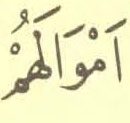 اَمْوَالَهُمْ